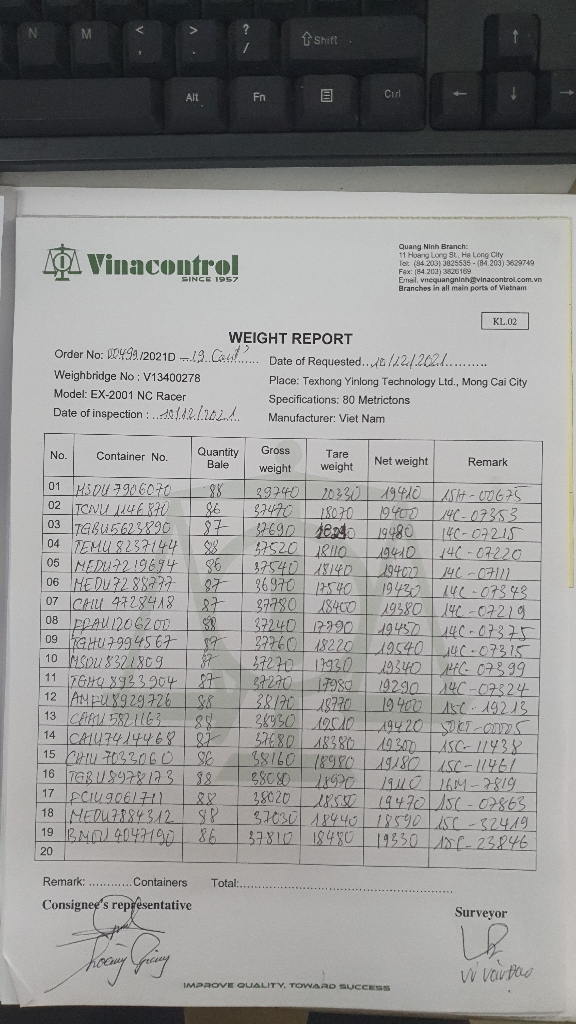 N M < , > . ? / ⇧ Shift ↑
Alt Fn Ctrl ← ↓ →
Vinacontrol
SINCE 1957
Quang Ninh Branch:
11 Hoang Long St., Ha Long City
Tel: (84.203) 3825535 - (84.203) 3629749
Fax: (84.203) 3826169
Email: vncquangninh@vinacontrol.com.vn
Branches in all main ports of Vietnam
KL.02
WEIGHT REPORT
Order No: 00499/2021D - 19 Cont's
Date of Requested...10/12/2021..........
Weighbridge No : V13400278
Place: Texhong Yinlong Technology Ltd., Mong Cai City
Model: EX-2001 NC Racer
Specifications: 80 Metrictons
Date of inspection : ...10/12/2021
Manufacturer: Viet Nam
No. Container No. Quantity Bale Gross weight Tare weight Net weight Remark
01 MSDU7906070 88 39740 20330 19410 15H-00675
02 TCNU1146870 86 37470 18070 19400 14C-07353
03 TGBU5623890 87 37690 19480 14C-07215
04 TEMU8237144 88 37520 18110 19410 14C-07220
05 MEDU7219694 86 37540 18140 19400 14C-07111
06 MEDU7288777 87 36970 17540 19430 14C-07343
07 CAIU 4728418 87 37780 18400 19380 14C-07219
08 1206200 88 37240 17790 19450 14C-07375
09 TGHU7994567 87 37760 18220 19540 14C-07315
10 MSDU8321809 87 37270 17930 19340 14C-07399
11 TGHU8933904 87 37270 17980 19290 14C-07324
12 AMFU8929726 88 38170 18770 19400 15C-19213
13 CAAU5821163 88 38930 19510 19420
14 CAIU7414468 87 37680 18380 19300 15C-11438
15 CAIU7033060 86 38160 18980 19180 15C-11461
16 TGBU8978173 88 38080 18970 19110 16M-7819
17 FCIU9061711 88 38020 18550 19470 15C-07863
18 MEDU7884312 88 37030 18440 18590 15C-32419
19 BMOU4047190 86 37810 18480 19330 15C-23846
20
Remark: ............Containers Total:......................................................
Consignee's representative
Surveyor
Hoàng Giang
Vi Văn Đao
IMPROVE QUALITY, TOWARD SUCCESS